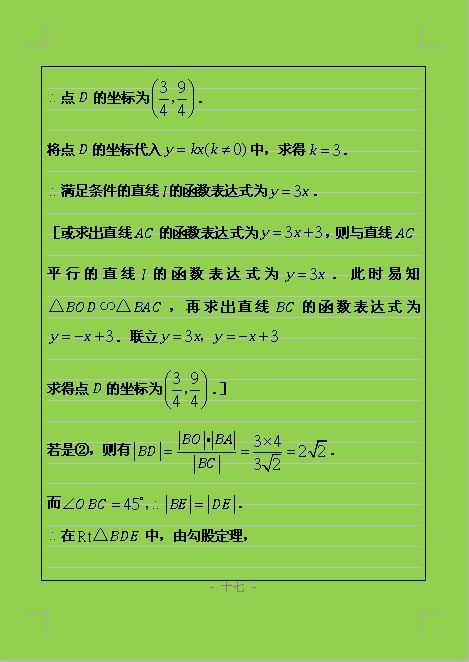 ∴点D的坐标为(3/4, 9/4).
将点D的坐标代入y=kx(k≠0)中，求得k=3.
∴满足条件的直线l的函数表达式为y=3x.
［或求出直线AC的函数表达式为y=3x+3,则与直线AC
平行的直线l的函数表达式为y=3x. 此时易知
△BOD∽△BAC，再求出直线BC的函数表达式为
y=-x+3. 联立y=3x, y=-x+3
求得点D的坐标为(3/4, 9/4).］
若是②，则有|BD|=|BO|•|BA|/|BC|=3×4/3√2=2√2.
而∠OBC=45°,∴|BE|=|DE|.
∴在Rt△BDE中，由勾股定理，
- 十七 -